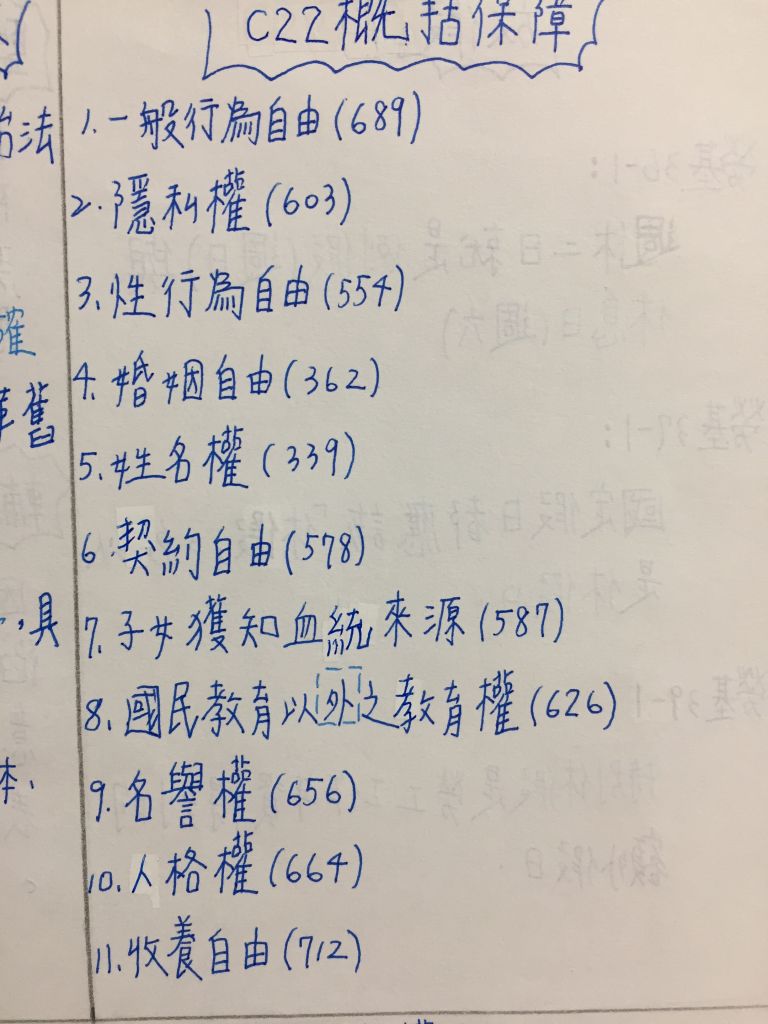 C22概括保障
1.一般行為自由(689)
2.隱私權(603)
3.性行為自由(554)
4.婚姻自由(362)
5.姓名權(339)
6.契約自由(578)
7.子女獲知血統來源(587)
8.國民教育以外之教育權(626)
9.名譽權(656)
10.人格權(664)
11.收養自由(712)